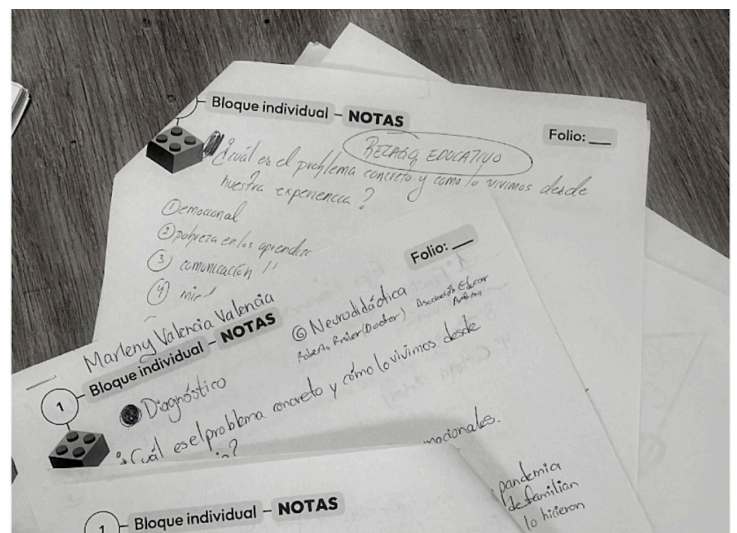 Bloque individual – NOTAS
Folio: ___
REZAGO EDUCATIVO
¿cuál es el problema concreto y como lo vivimos desde
nuestra experiencia?
① emocional
② pobreza en los aprendizajes
③ comunicación
④
Marleny Valencia Valencia
Folio: ___
1
Bloque individual – NOTAS
⑥ Neurodidáctica
Roberto Rosler (Doctor) Asociación Educar
Diagnóstico
¿Cuál es el problema concreto y cómo lo vivimos desde
emocionales.
pandemia
de familian
lo hicieron
1
Bloque individual – NOTAS